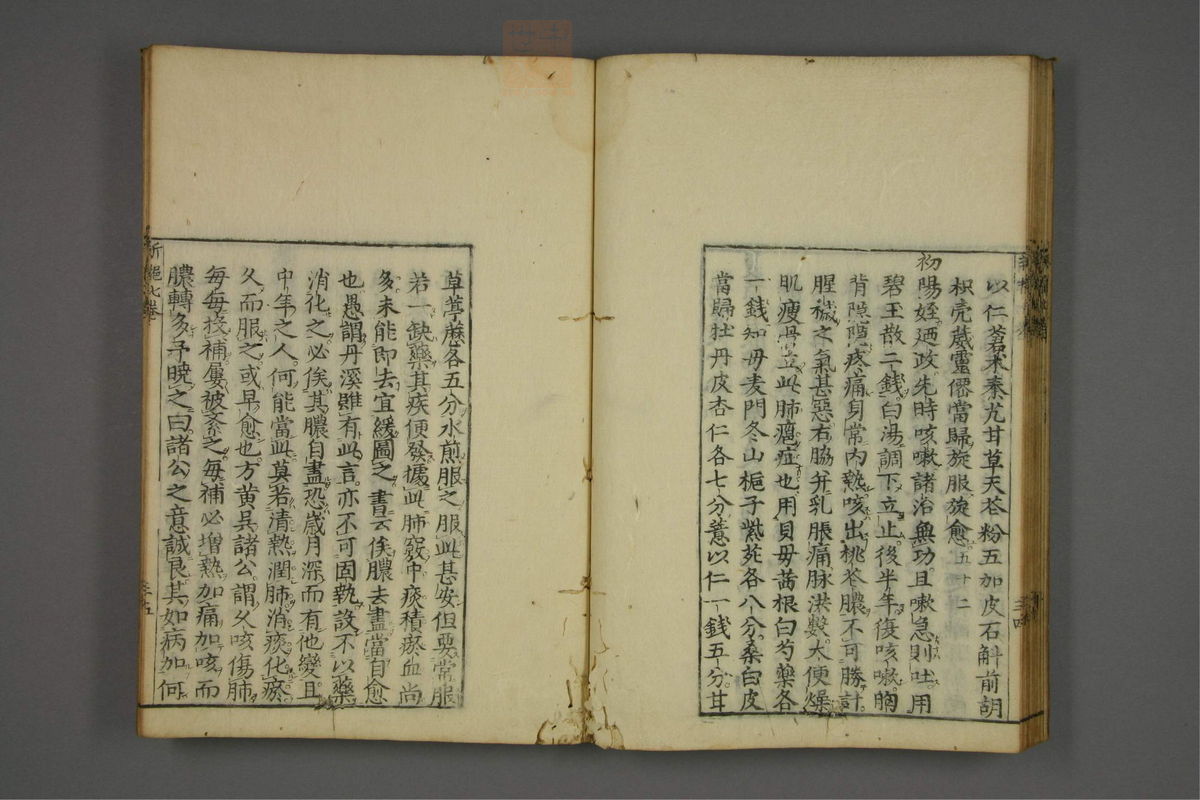 以仁茗朮秦艽甘草天花粉五加皮石斛前胡
枳壳葳靈僊當歸旋服旋愈五十二
初陽姪廼政先時咳嗽諸治無功且嗽急則吐用
碧玉散二錢白湯調下立止後半年復咳嗽胸
背隙隙疼痛身常內熱咳出桃花膿不可勝計
腥穢之氣甚惡右脇并乳脹痛脉洪數大便燥
肌瘦骨立此肺癰症也用貝母茜根白芍藥各
一錢知母麦門冬山梔子紫菀各八分桑白皮
當歸牡丹皮杏仁各七分薏以仁一錢五分甘
草葶藶各五分水煎服之服此甚安但要常服
若一缺藥其疾便發據此肺竅中痰積瘀血尚
多未能即去宜緩圖之書云俟膿去盡當自愈
也愚謂丹溪雖有此言亦不可因執設不以藥
消化之必俟其膿自盡恐歲月深而有他變且
中年之人何能當此莫若清熱潤肺消痰化瘀
久而服之或早愈也方黃吳諸公謂久咳傷肺
每每投補屢被紊之每補必增熱加痛加咳而
膿轉多予曉之曰諸公之意誠良其如病加何
三十五
三十四